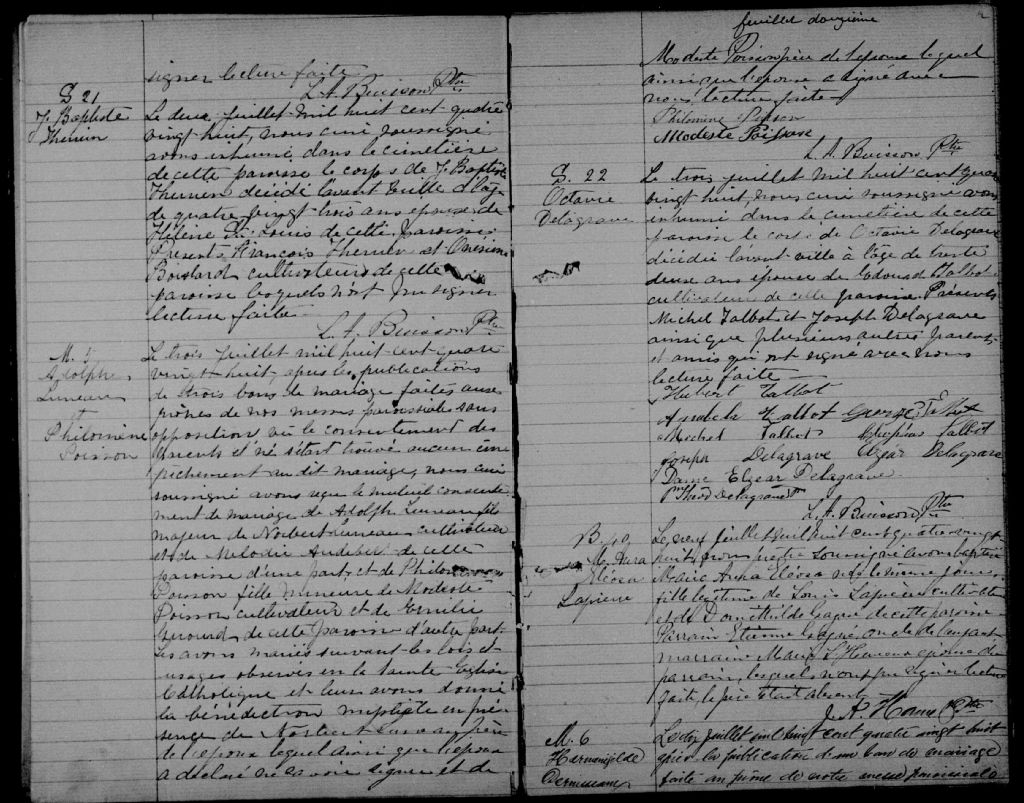 signer lecture faite
L. A. Buisson Ptre
S 21
J. Baptiste
Therien
Le deux juillet mil huit cent quatre
vingt huit, nous curé soussigné
avons inhumé dans le cimetière
de cette paroisse le corps de J Baptiste
Therien décédé l'avant veille à l'âge
de quatre vingt trois ans époux de
Hélène St. Louis de cette paroisse
Présents François Therien et Onésime
Boislard cultivateurs de cette
paroisse lesquels n'ont pu signer
lecture faite
L. A. Buisson Ptre
M. 5
Adolphe
Luneau
et
Philomène
Poisson
Le trois juillet mil huit cent quatre
vingt huit, après les publications
de trois bans de mariage faites aux
prônes de nos messes paroissiales sans
opposition vu le consentement des
parents et ne s'étant trouvé aucun em
pêchement au dit mariage, nous curé
soussigné avons reçu le mutuel consente
ment de mariage de Adolphe Luneau fils
majeur de Norbert Luneau cultivateur
et de Mélodie Audebert de cette
paroisse d'une part, et de Philomène
Poisson fille mineure de Modeste
Poisson cultivateur et de Emilie
Girouard de cette paroisse d'autre part
Les avons mariés suivant les lois et
usages observés en la Sainte Eglise
Catholique et leur avons donné
la bénédiction nuptiale en pré
sence de Norbert Luneau père
de l'époux lequel ainsi que l'époux
a déclaré ne savoir signer et de
feuillet douzième
Modeste Poisson père de l'épouse lequel
ainsi que l'épouse a signé avec
nous lecture faite
Philomène Poisson
Modeste Poisson
L. A. Buisson Ptre
S. 22
Octavie
Delagrave
Le trois juillet mil huit cent quatre
vingt huit, nous curé soussigné avons
inhumé dans le cimetière de cette
paroisse le corps de Octavie Delagrave
décédée l'avant veille à l'âge de trente
deux ans épouse de Edouard Talbot
cultivateur de cette paroisse Présents
Michel Talbot et Joseph Delagrave
ainsi que plusieurs autres parents
et amis qui ont signé avec nous
lecture faite
Hubert Talbot
Talbot George Talbot
Michel Talbot Talbot
Joseph Delagrave Elzéar Delagrave
Dame Elzear Delagrave
Delagrave
L. A. Buisson Ptre
B. 40
M. Anna
Eléosa
Lapierre
Le neuf juillet mil huit cent quatre vingt
huit, nous prêtre soussigné avons baptisé
Marie Anna Eléosa née le même jour
fille légitime de Louis Lapierre cultivateur
et de Domithilde Gagné de cette paroisse
Parrain Etienne Gagné, oncle de l'enfant
marraine Marie L'Heureux épouse du
parrain, lesquels n'ont pu signer lecture
faite, le père étant absent
Ptre
M. 6
Hermenegilde
Le dix juillet mil huit cent quatre vingt huit
après la publication d'un ban de mariage
faite au prône de notre messe paroissiale